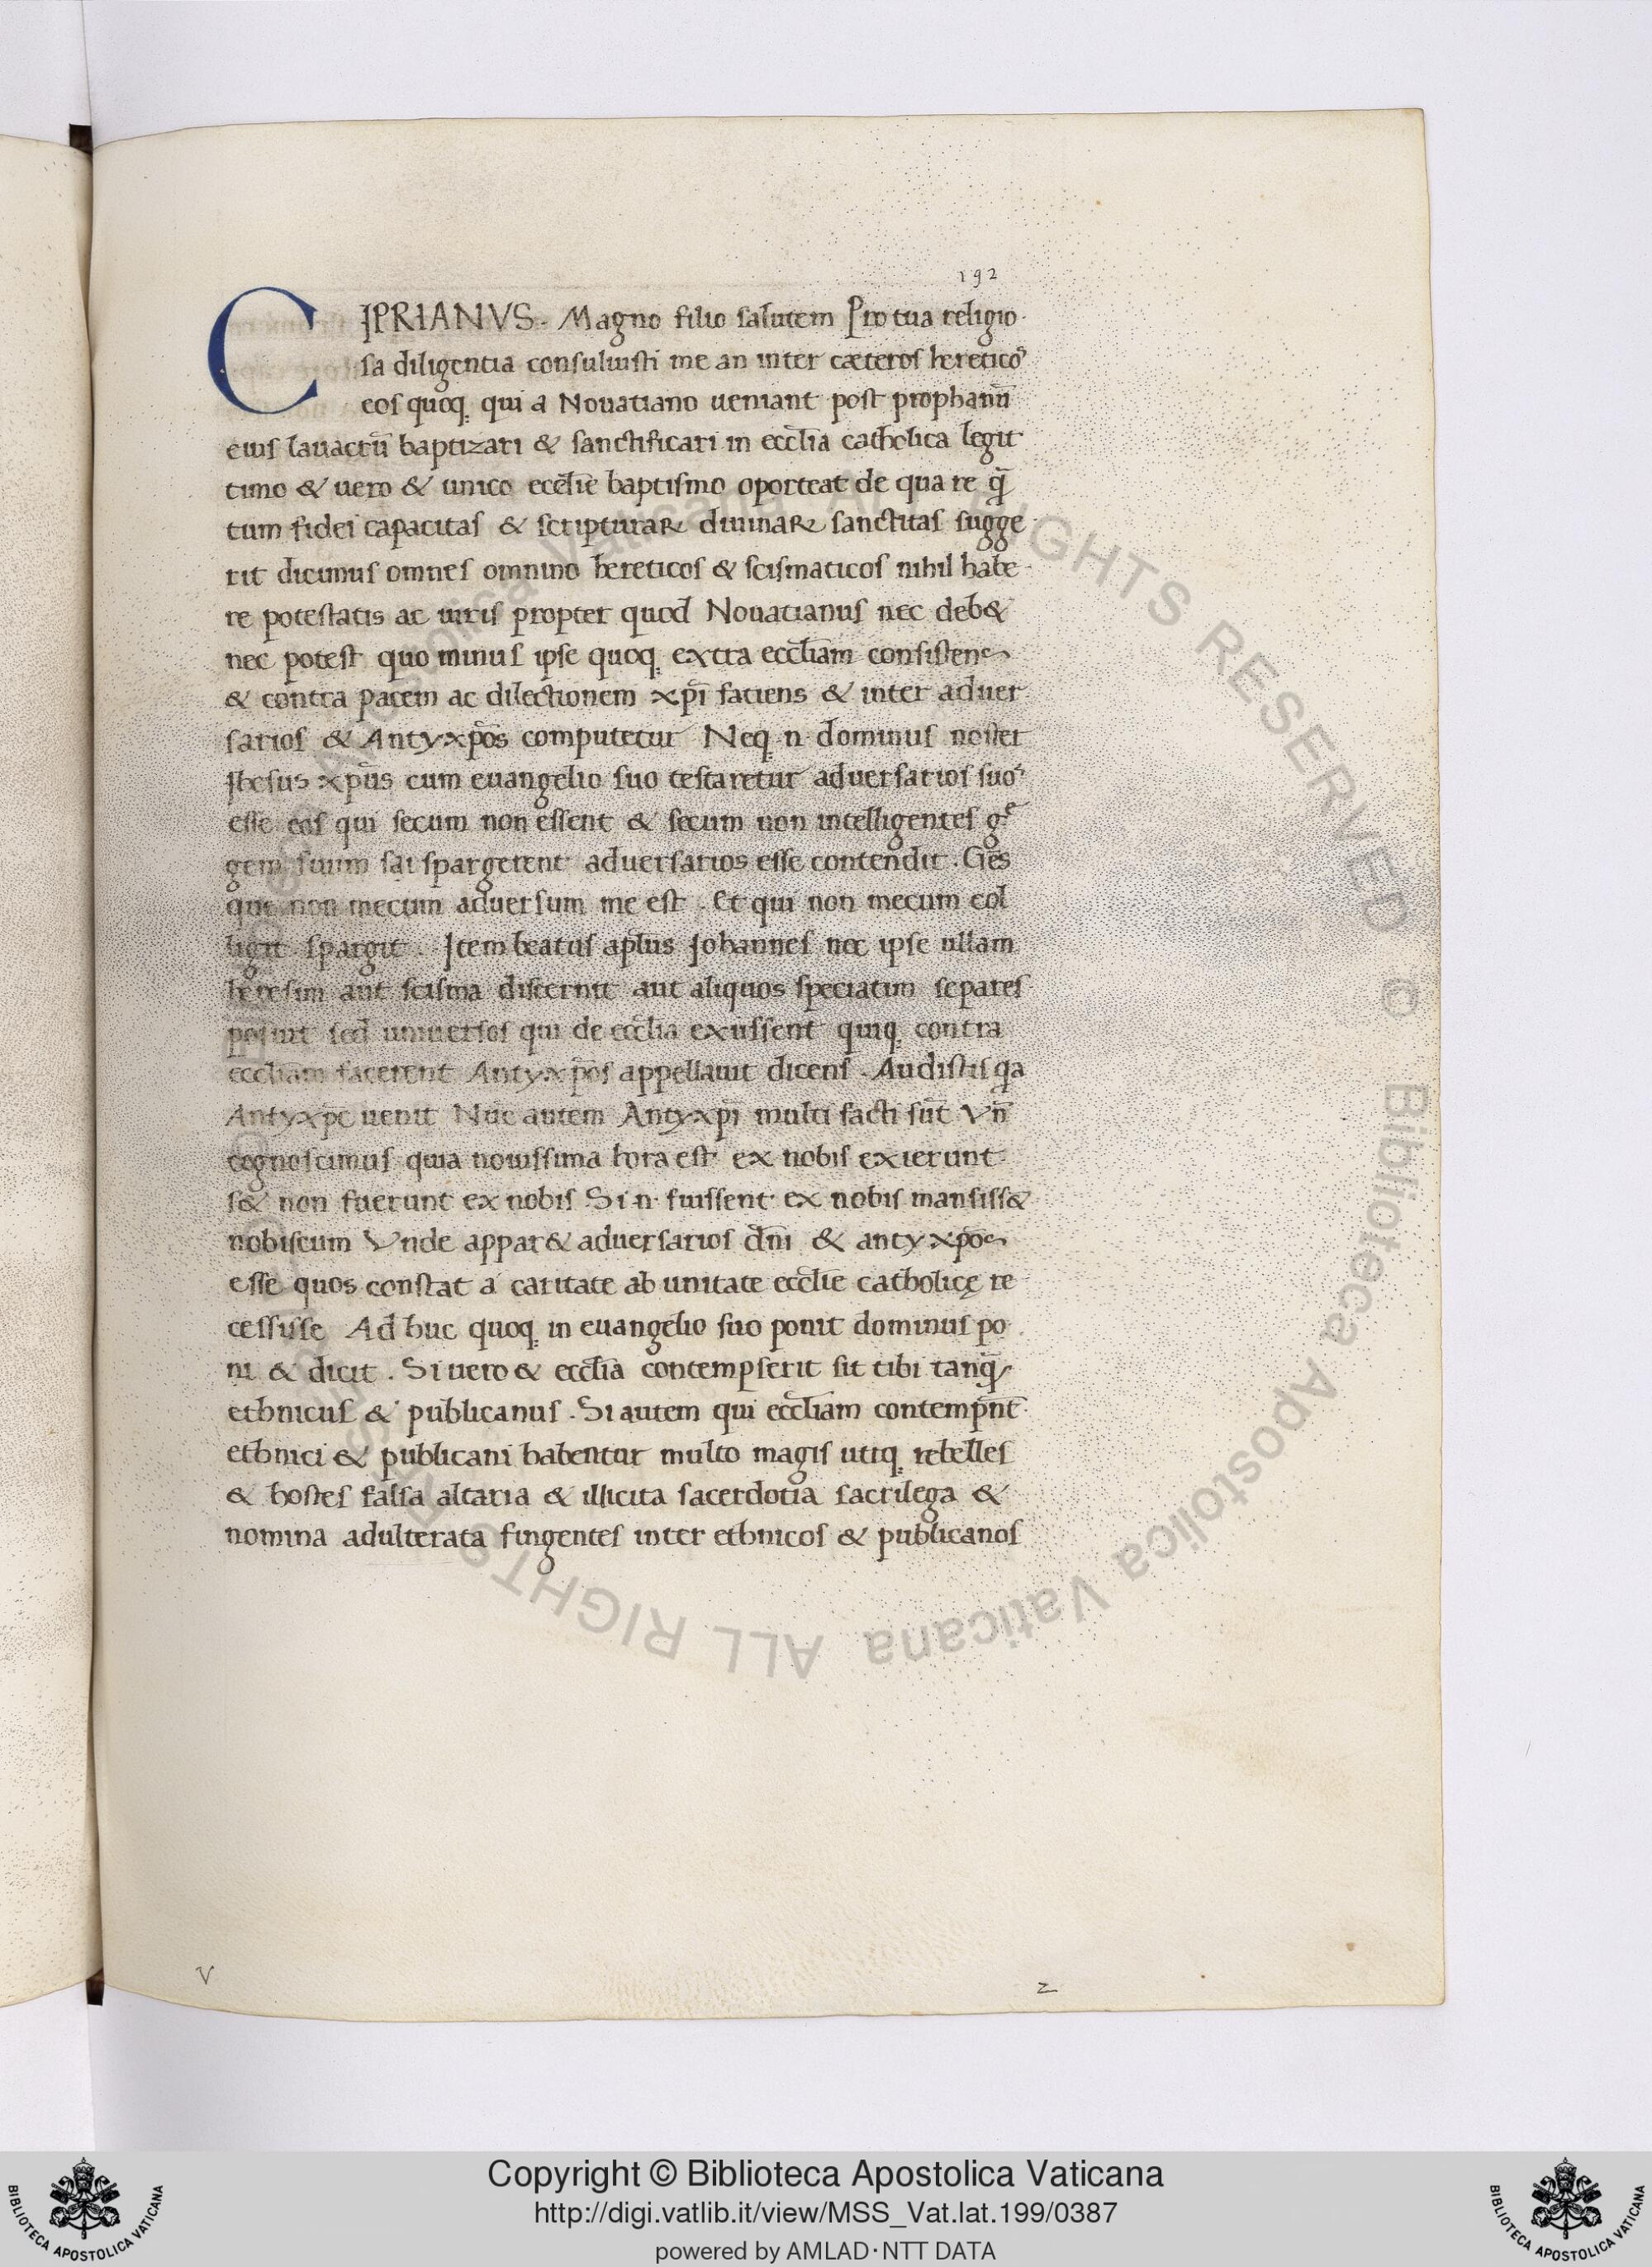 192
CIPRIANVS. Magno filio salutem Pro tua religio
sa diligentia consuluisti me an inter cæteros heretico᷒
eos quoq; qui a Nouatiano ueniant post prophanū
eius lauacrū baptizari & sanctificari in eccl̄ia catholica legit
timo & uero & unico eccl̄ie baptismo oporteat de qua re q̄
tum fidei capacitas & scripturaꝝ diuinaꝝ sanctitas sugge
rit dicimus omnes omnino hereticos & scismaticos nihil habe
re potestatis ac iuris propter quod Nouatianus nec deb&
nec potest quo minus ipse quoq; extra eccl̄iam consistens
& contra pacem ac dilectionem xp̄i faciens & inter aduer
sarios & Antyxp̄os computetur Neq; n dominus noster
Ihesus xp̄us cum euangelio suo testaretur aduersarios suo᷒
esse eos qui secum non essent & secum non intelligentes gͬe
gem suum sai spargerent aduersarios esse contendit. Gēs
qui non mecum aduersum me est. Et qui non mecum col
ligit spargit. Item beatus apl̄us Johannes nec ipse ullam
heresim aut scisma discernit aut aliquos speciatim separes
posuit sed uniuersos qui de eccl̄ia exissent quiq; contra
eccl̄iam facerent Antyxp̄os appellauit dicens. Audistis q̄a
Antyxp̄c uenit Nūc autem Antyxp̄i multi facti sūt Vn̄
cognoscimus quia nouissima hora est ex nobis exierunt
s& non fuerunt ex nobis Si n fuissent ex nobis mansiss&
nobiscum Vnde appar& aduersarios dn̄i & antyxp̄os
esse quos constat a caritate ab unitate eccl̄ie catholicę re
cessisse Ad huc quoq; in euangelio suo ponit dominus po
ni & dicit. Si uero & eccl̄ia contempserit sit tibi tanq̄
ethnicus & publicanus. Si autem qui eccl̄iam contemp̄nt
ethnici & publicani habentur multo magis utiq; rebelles
& hostes falsa altaria & illicita sacerdotia sacrilega &
nomina adulterata fingentes inter ethnicos & publicanos
V
2
ALL RIGHTS RESERVED © Biblioteca Apostolica Vaticana
Copyright © Biblioteca Apostolica Vaticana
http://digi.vatlib.it/view/MSS_Vat.lat.199/0387
powered by AMLAD·NTT DATA
BIBLIOTECA APOSTOLICA VATICANA
BIBLIOTECA APOSTOLICA VATICANA